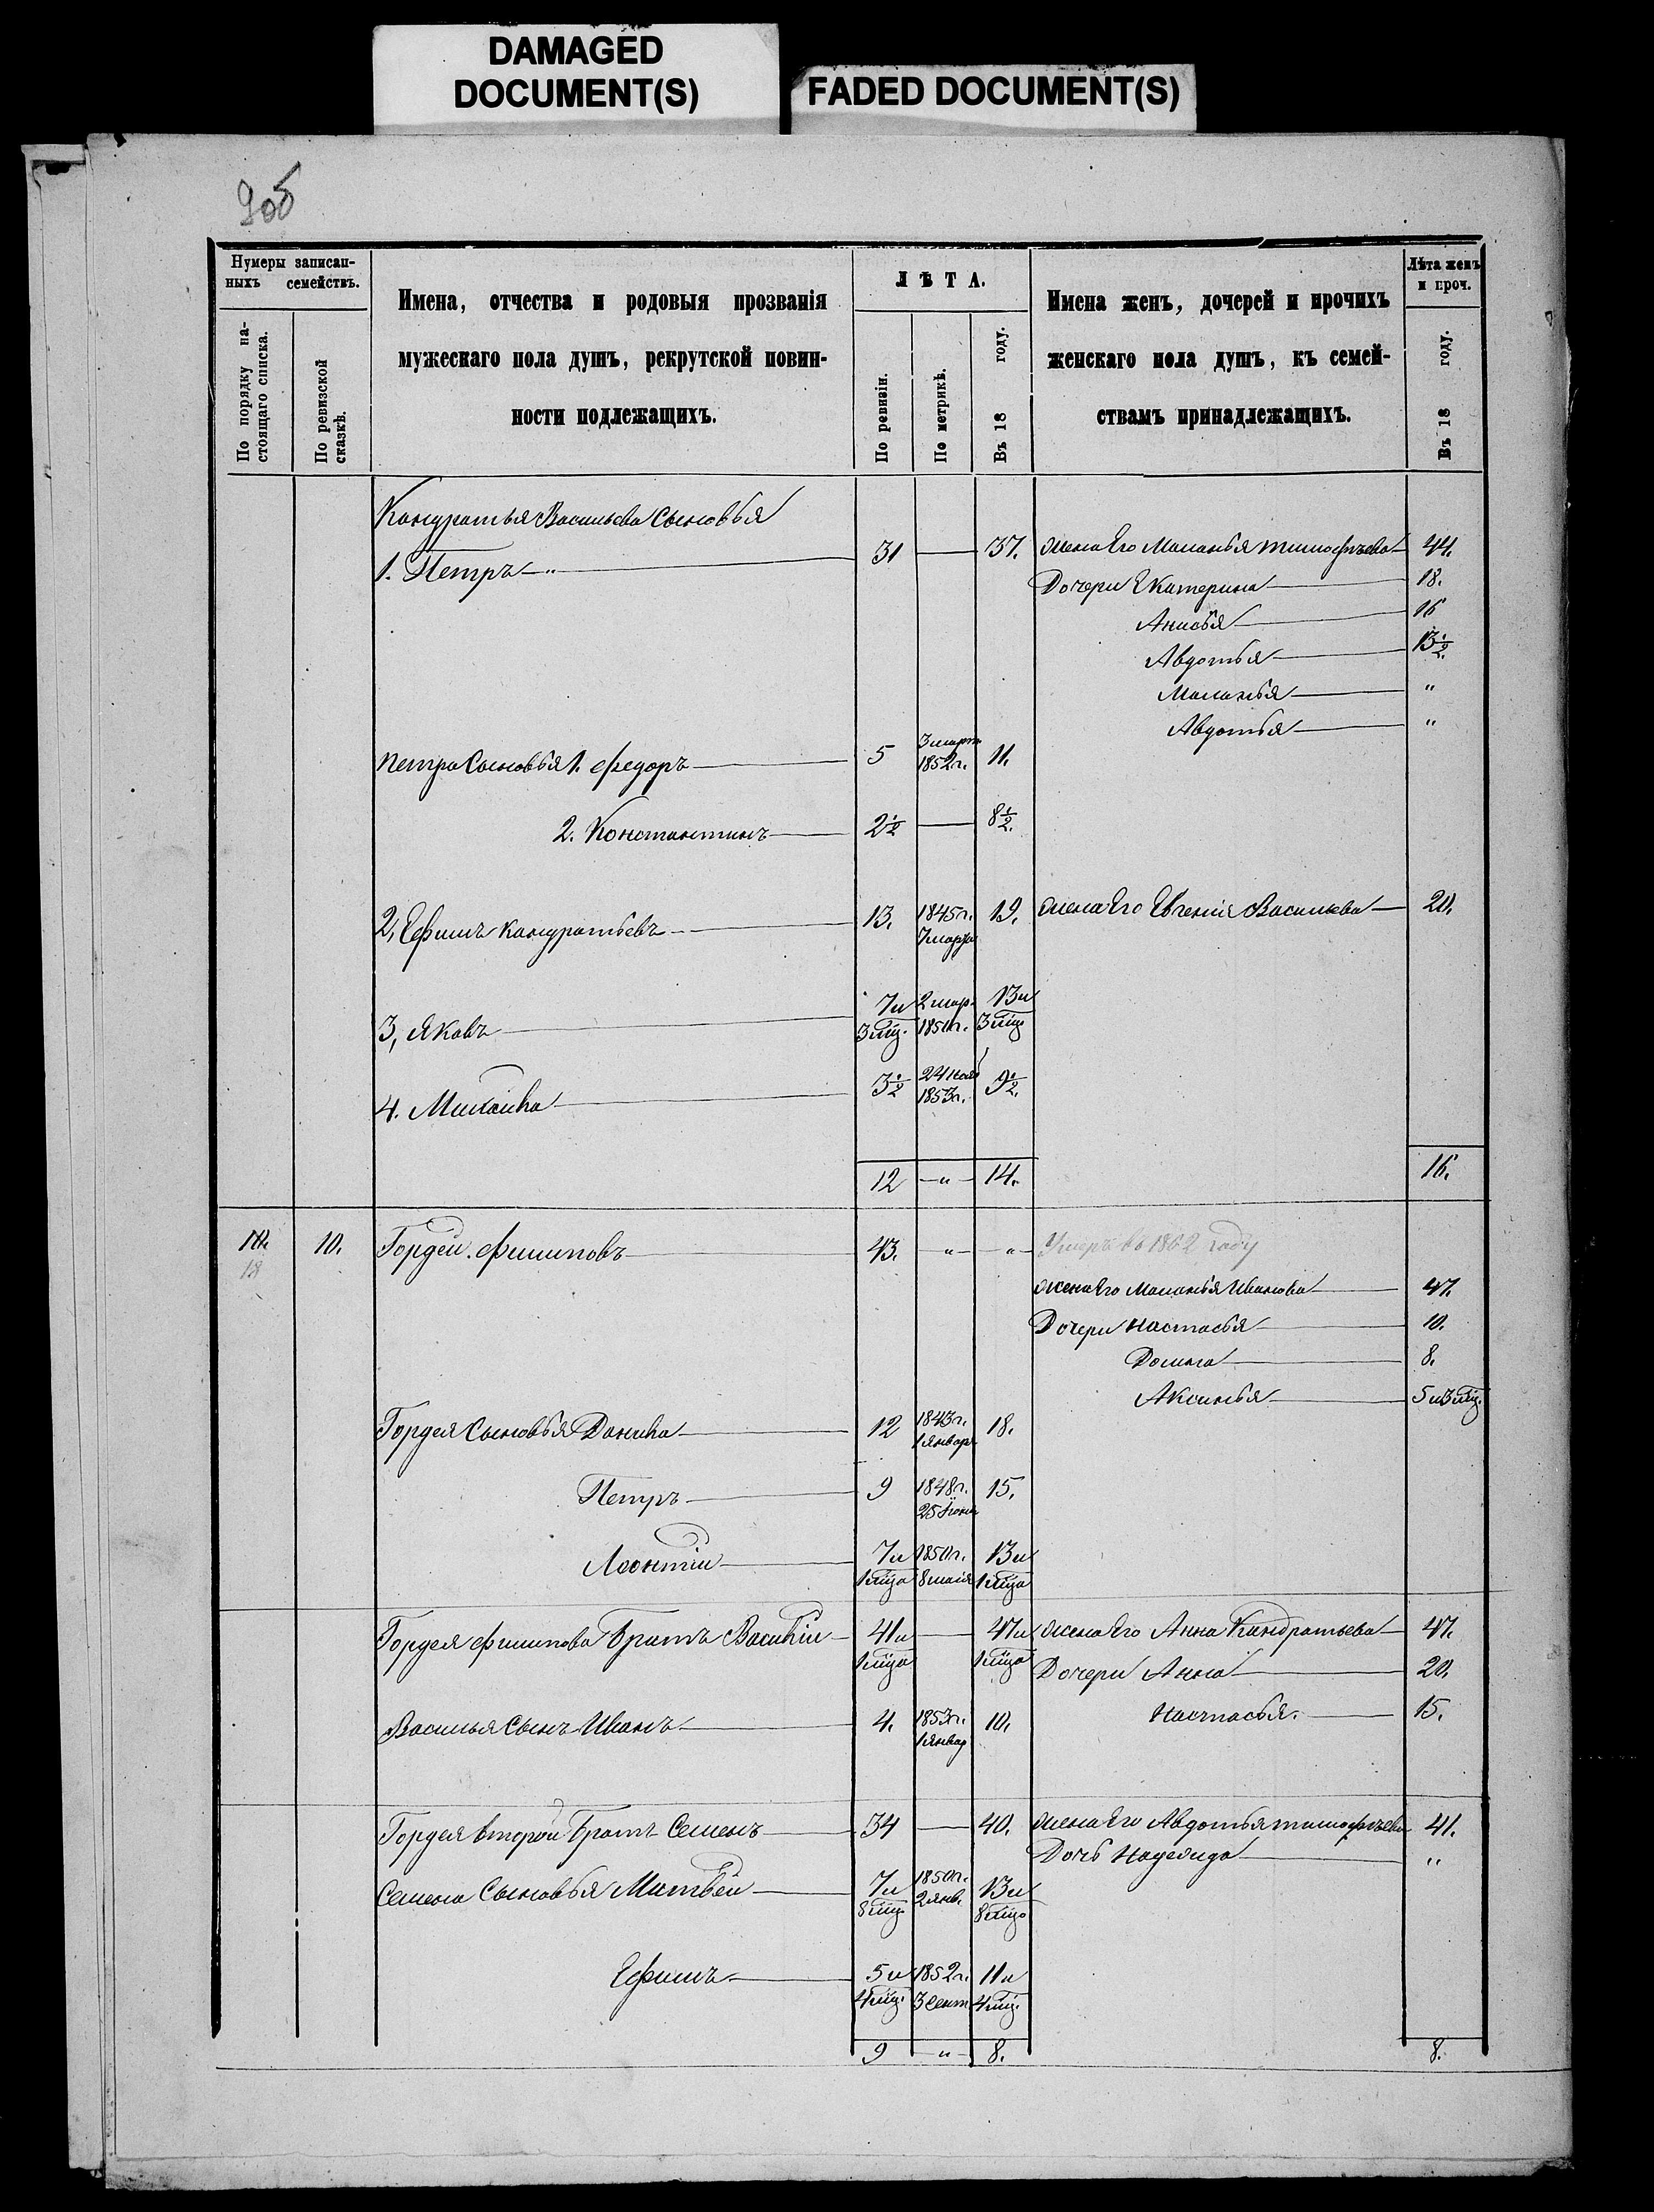 DAMAGED
DOCUMENT(S)
FADED DOCUMENT(S)
Нумеры записан-
ныхъ семействъ.
По порядку на-
стоящаго списка.
По ревизской
сказкѣ.
Имена, отчества и родовыя прозванія
мужескаго пола душъ, рекрутской повин-
ности подлежащихъ.
ЛѢТА.
По ревизіи.
По метрикѣ.
Въ 18 году.
Имена женъ, дочерей и прочихъ
женскаго пола душъ, къ семей-
ствамъ принадлежащихъ.
Лѣта женъ
и проч.
Въ 18 году.
Кандратья Васильева Сыновья
1. Петръ 31 — 37. Жена Его Маланья тимофѣева 44.
Дочери Екатерина 18.
Анисья 16
Авдотья 13½
Маланья "
Авдотья "
Петра Сыновья 1. федоръ 5 3 март. 1852 г. 11.
2. Константинъ 2½ — 8½.
2, Ефимъ Кандратьевъ 13. 1845 г. 7 марта 19. Жена Его Евгенія Васильева 20.
3, Яковъ 7 и 3 мѣц. 2 мар. 1850 г. 13 и 3 мѣц.
4. Михаила 3½ 24 нояб 1853 г. 9½.
12 — " — 14. 16.
10. 10. Гордей филиповъ 43. — " — " — Умеръ въ 1862 году
18
Жена Его Маланья Иванова 47.
Дочери Настасья 10.
Домна 8.
Аксинья 5 и 3 мѣц.
Гордея Сыновья Данила 12 1843 г. 1 январ 18.
Петръ 9 1848 г. 25 Іюня 15.
Леонтій 7 и 1 мѣца 1850 г. 8 маія 13 и 1 мѣца
Гордея филипова Братъ Василій 41 и 1 мѣца — 47 и 1 мѣца Жена Его Анна Кандратьева 47.
Дочери Анна 20.
Василья Сынъ Иванъ 4. 1853 г. 1 январ 10. Настасья. 15.
Гордея второй Братъ Семенъ 34 — 40. Жена Его Авдотья тимофѣева 41.
Дочь Надежда "
Семена Сыновья Матвей 7 и 8 мѣц. 1850 г. 2 янв. 13 и 8 мѣцо
Ефимъ 5 и 4 мѣц. 1852 г. 3 Сент. 11 и 4 мѣц.
9 — " — 8. 8.